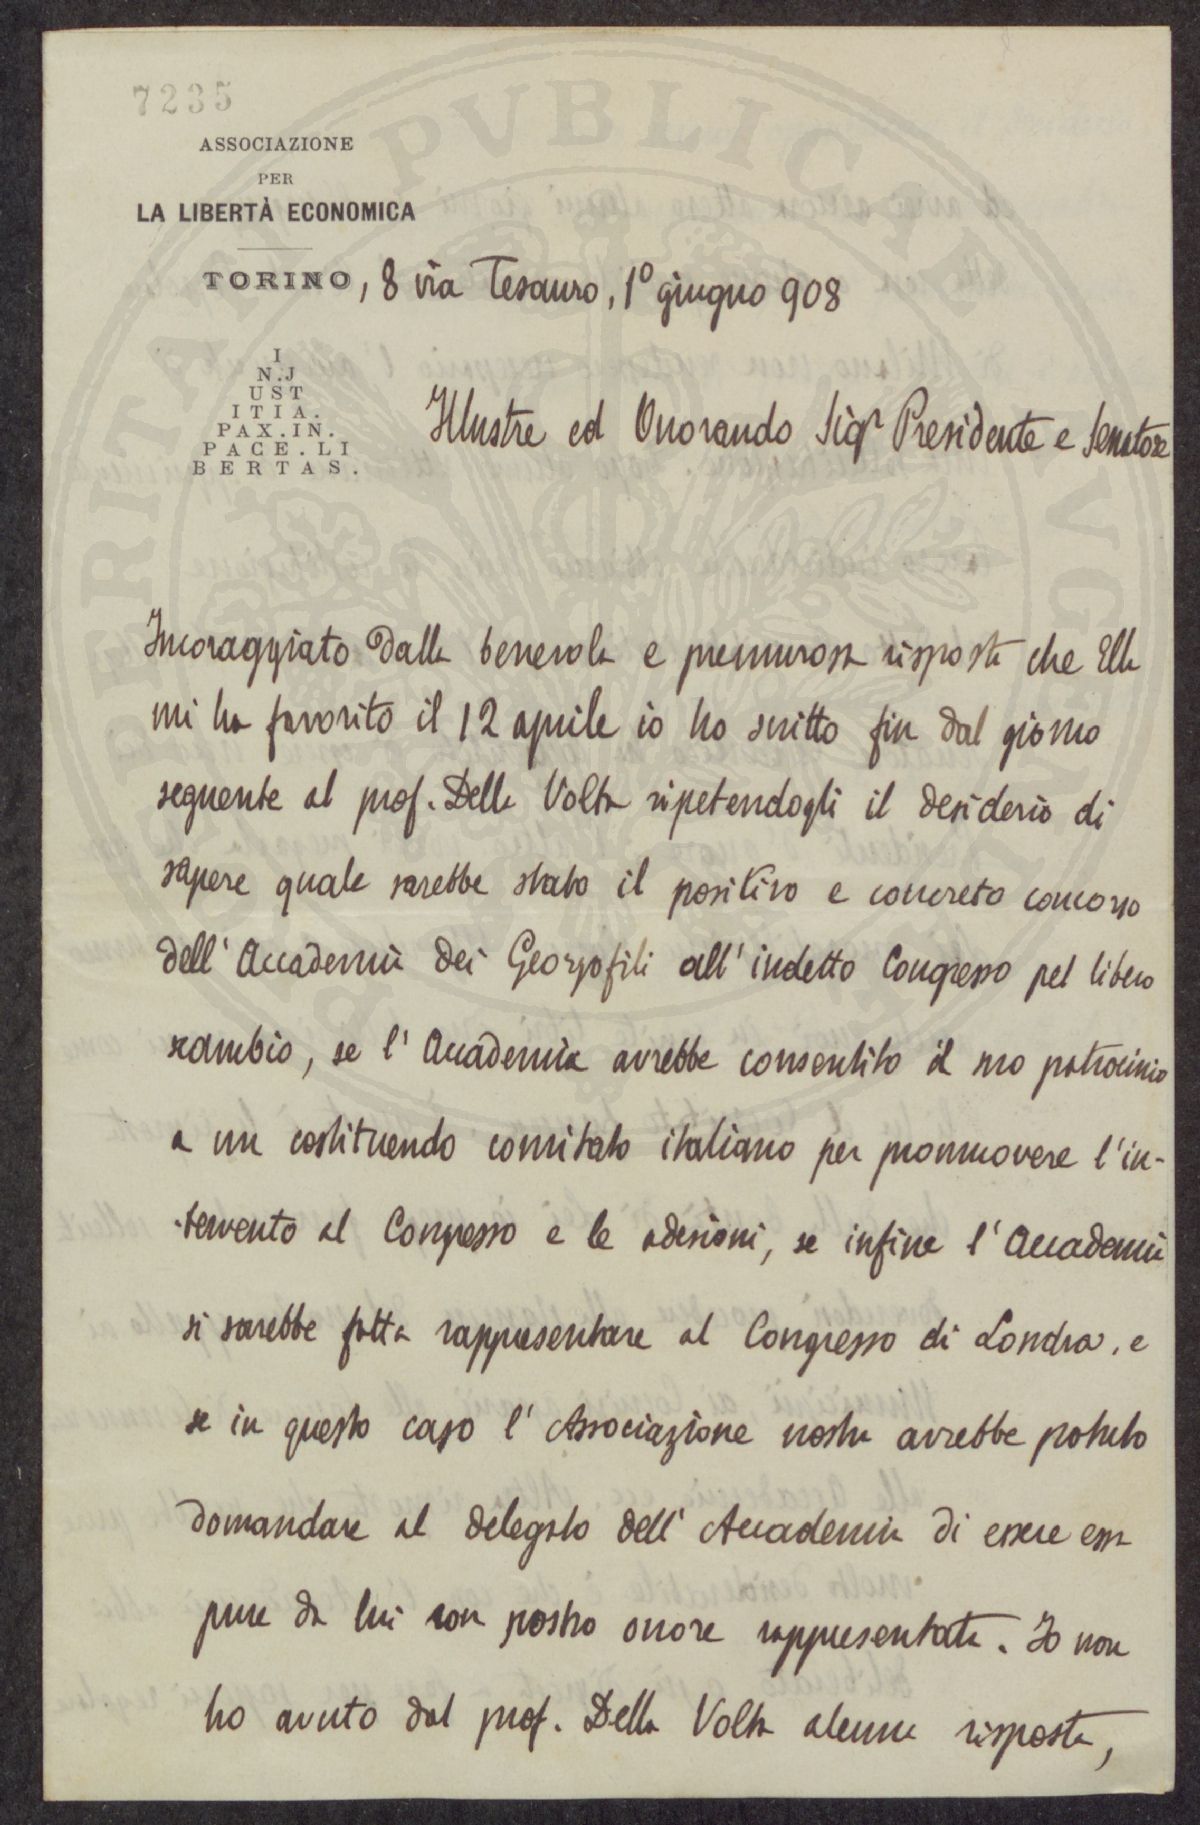 7235
ASSOCIAZIONE
PER
LA LIBERTÀ ECONOMICA
TORINO, 8 via Tesauro, 1º giugno 908
I
N.J
UST
ITIA.
PAX.IN.
PACE.LI
BERTAS.
Illustre ed Onorando Sigr Presidente e Senatore
Incoraggiato dalla benevola e premurosa risposta che Ella
mi ha favorito il 12 aprile io ho scritto fin dal giorno
seguente al prof. Della Volta ripetendogli il desiderio di
sapere quale sarebbe stato il positivo e concreto concorso
dell'Accademia dei Georgofili all'indetto Congresso pel libero
scambio, se l'Accademia avrebbe consentito il suo patrocinio
a un costituendo comitato italiano per promuovere l'in-
-tervento al Congresso e le adesioni, se infine l'Accademia
si sarebbe fatta rappresentare al Congresso di Londra, e
se in questo caso l'Associazione nostra avrebbe potuto
domandare al delegato dell'Accademia di essere essa
pure da lui con nostro onore rappresentata. Io non
ho avuto dal prof. Della Volta alcuna risposta,